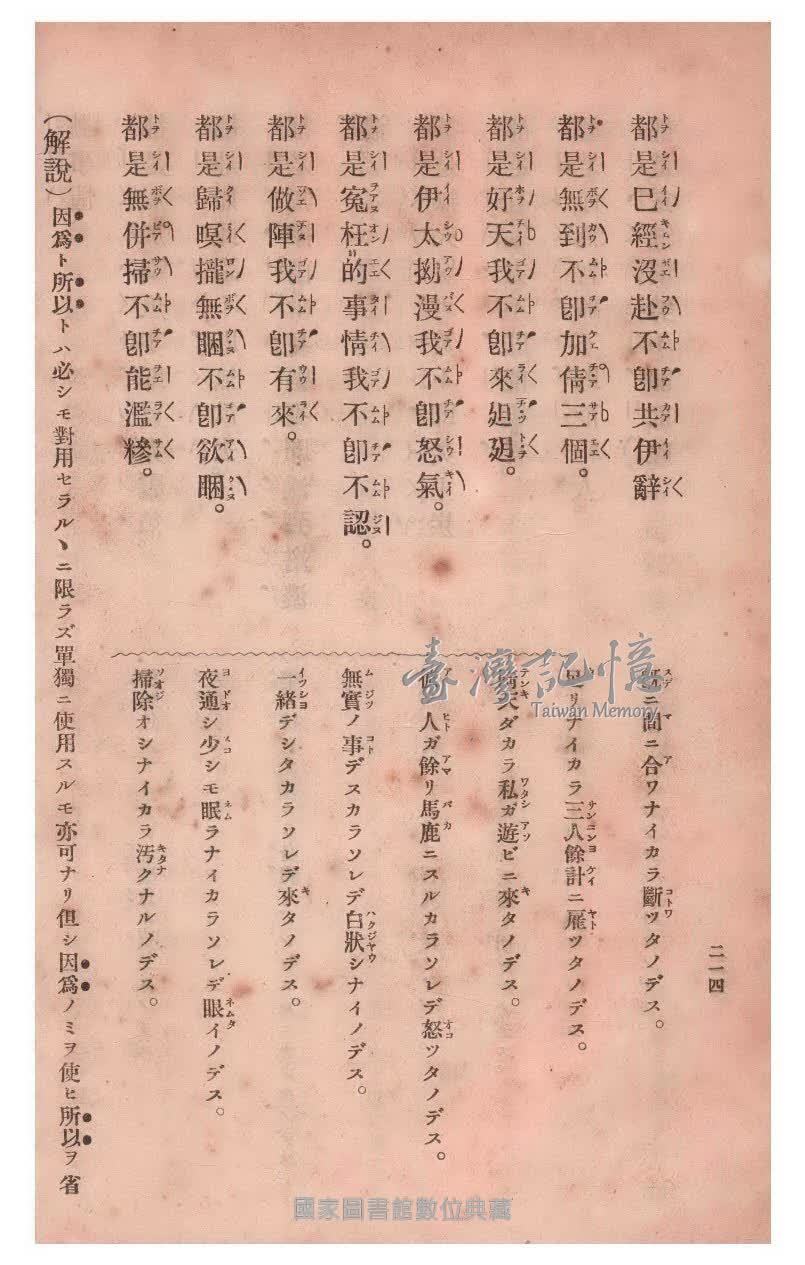 二一四
都是已經沒赴不卽共伊辭
都是無到不卽加倩三個。
都是好天我不卽來𨑨迌。
都是伊太拗漫我不卽怒氣。
都是冤枉的事情我不卽不認。
都是做陣我不卽有來。
都是歸暝攏無睏不卽欲睏。
都是無併掃不卽能濫糝。
ニ間ニ合ワナイカラ斷ツタノデス。
リナイカラ三人餘計ニ雇ツタノデス。
天ダカラ私ガ遊ビニ來タノデス。
人ガ餘リ馬鹿ニスルカラソレデ怒ツタノデス。
無實ノ事デスカラソレデ白狀シナイノデス。
一緒デシタカラソレデ來タノデス。
夜通シ少シモ眠ラナイカラソレデ眠イノデス。
掃除オシナイカラ汚クナルノデス。
(解說)因爲ト所以トハ必シモ對用セラルヽニ限ラズ單獨ニ使用スルモ亦可ナリ但シ因爲ノミヲ使ヒ所以ヲ省
臺灣記憶
Taiwan Memory
國家圖書館數位典藏